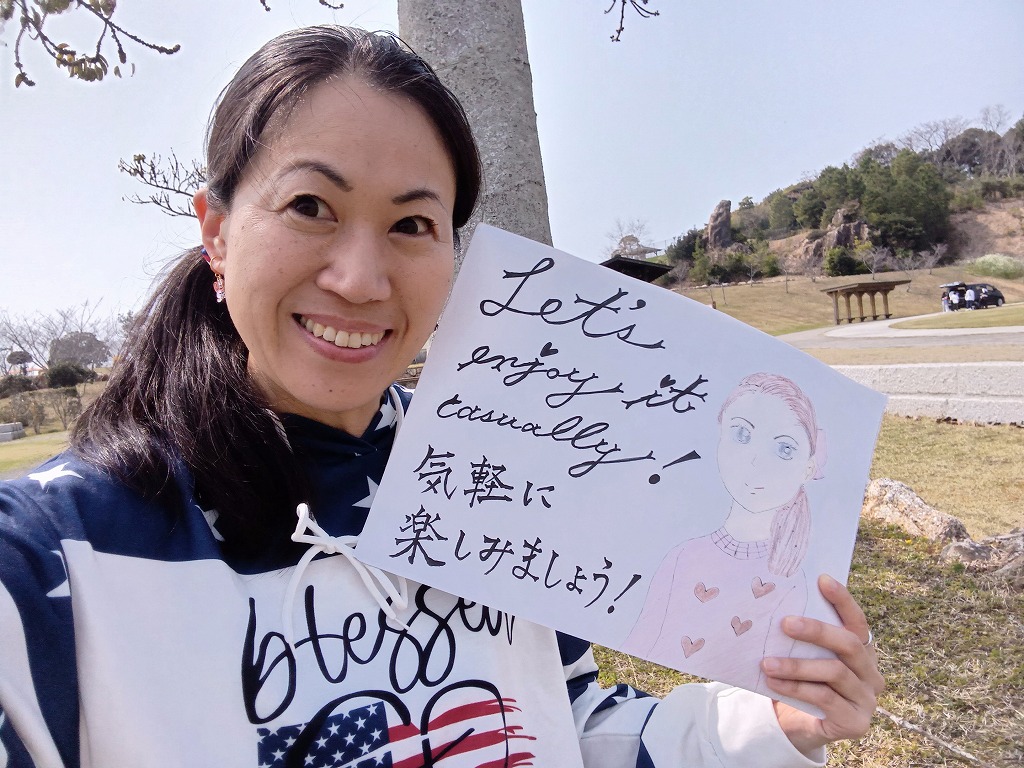 Let's
enjoy it
casually!
気軽に
楽しみましょう!
blessed